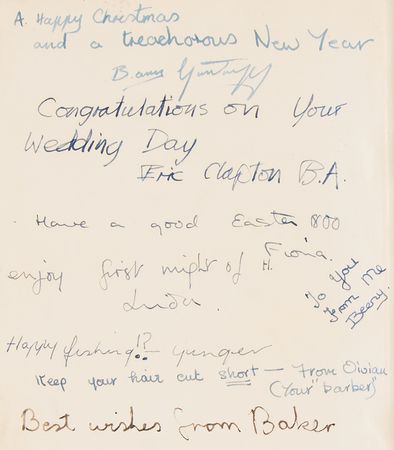 A. Happy Christmas
and a treachorous New Year
Congratulations on Your
Wedding Day
Eric Clapton B.A.
Have a good Easter
Fiona.
enjoy first night of H.
Linda.
To You
from Me
Happy fishing!?
Keep your hair cut short — from
(Your "barber")
Best wishes from Baker